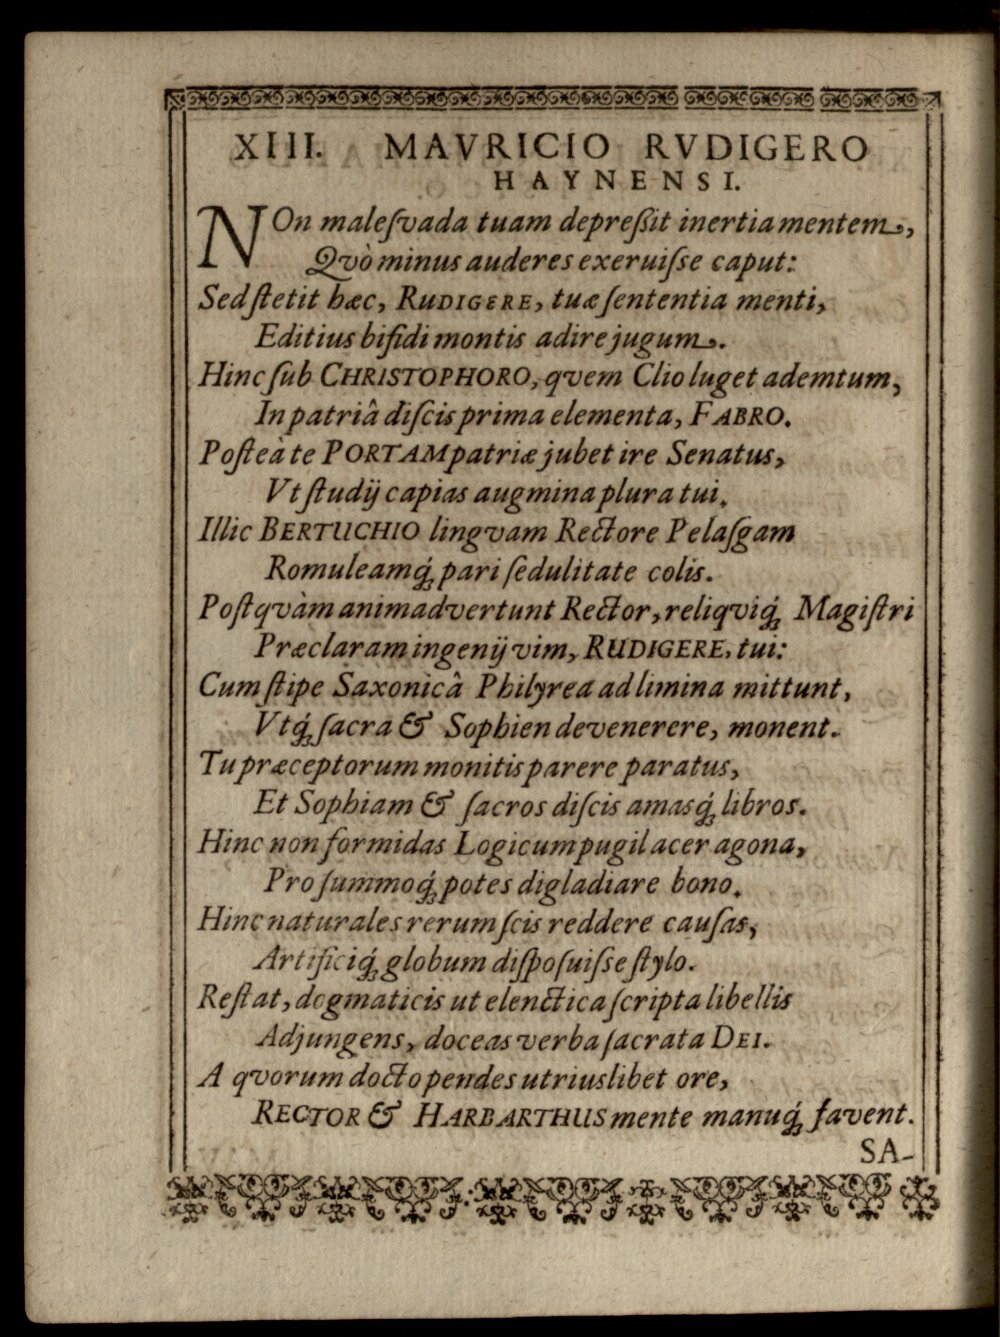 XIII. MAVRICIO RVDIGERO
HAYNENSI.
NOn maleſvada tuam depreſſit inertia mentem,
Qvò minus auderes exeruiſſe caput:
Sed ſtetit hæc, RUDIGERE, tuæ ſententia menti,
Editius bifidi montis adire jugum.
Hinc ſub CHRISTOPHORO, qvem Clio luget ademtum,
In patriâ diſcis prima elementa, FABRO.
Poſteà te PORTAM patriæ jubet ire Senatus,
Vt ſtudij capias augmina plura tui.
Illic BERTUCHIO lingvam Rectore Pelaſgam
Romuleamq́; pari ſedulitate colis.
Poſtqvàm animadvertunt Rector, reliqviq́; Magiſtri
Præclaram ingenij vim, RUDIGERE, tui:
Cum ſtipe Saxonicâ Philyrea ad limina mittunt,
Vtq́; ſacra & Sophien devenerere, monent.
Tu præceptorum monitis parere paratus,
Et Sophiam & ſacros diſcis amasq́; libros.
Hinc non formidas Logicum pugil acer agona,
Pro ſummoq́; potes digladiare bono.
Hinc naturales rerum ſcis reddere cauſas,
Artificiq́; globum diſpoſuiſſe ſtylo.
Reſtat, dogmaticis ut elenctica ſcripta libellis
Adjungens, doceas verba ſacrata DEI.
A qvorum docto pendes utriuslibet ore,
RECTOR & HARBARTHUS mente manuq́; favent.
SA-